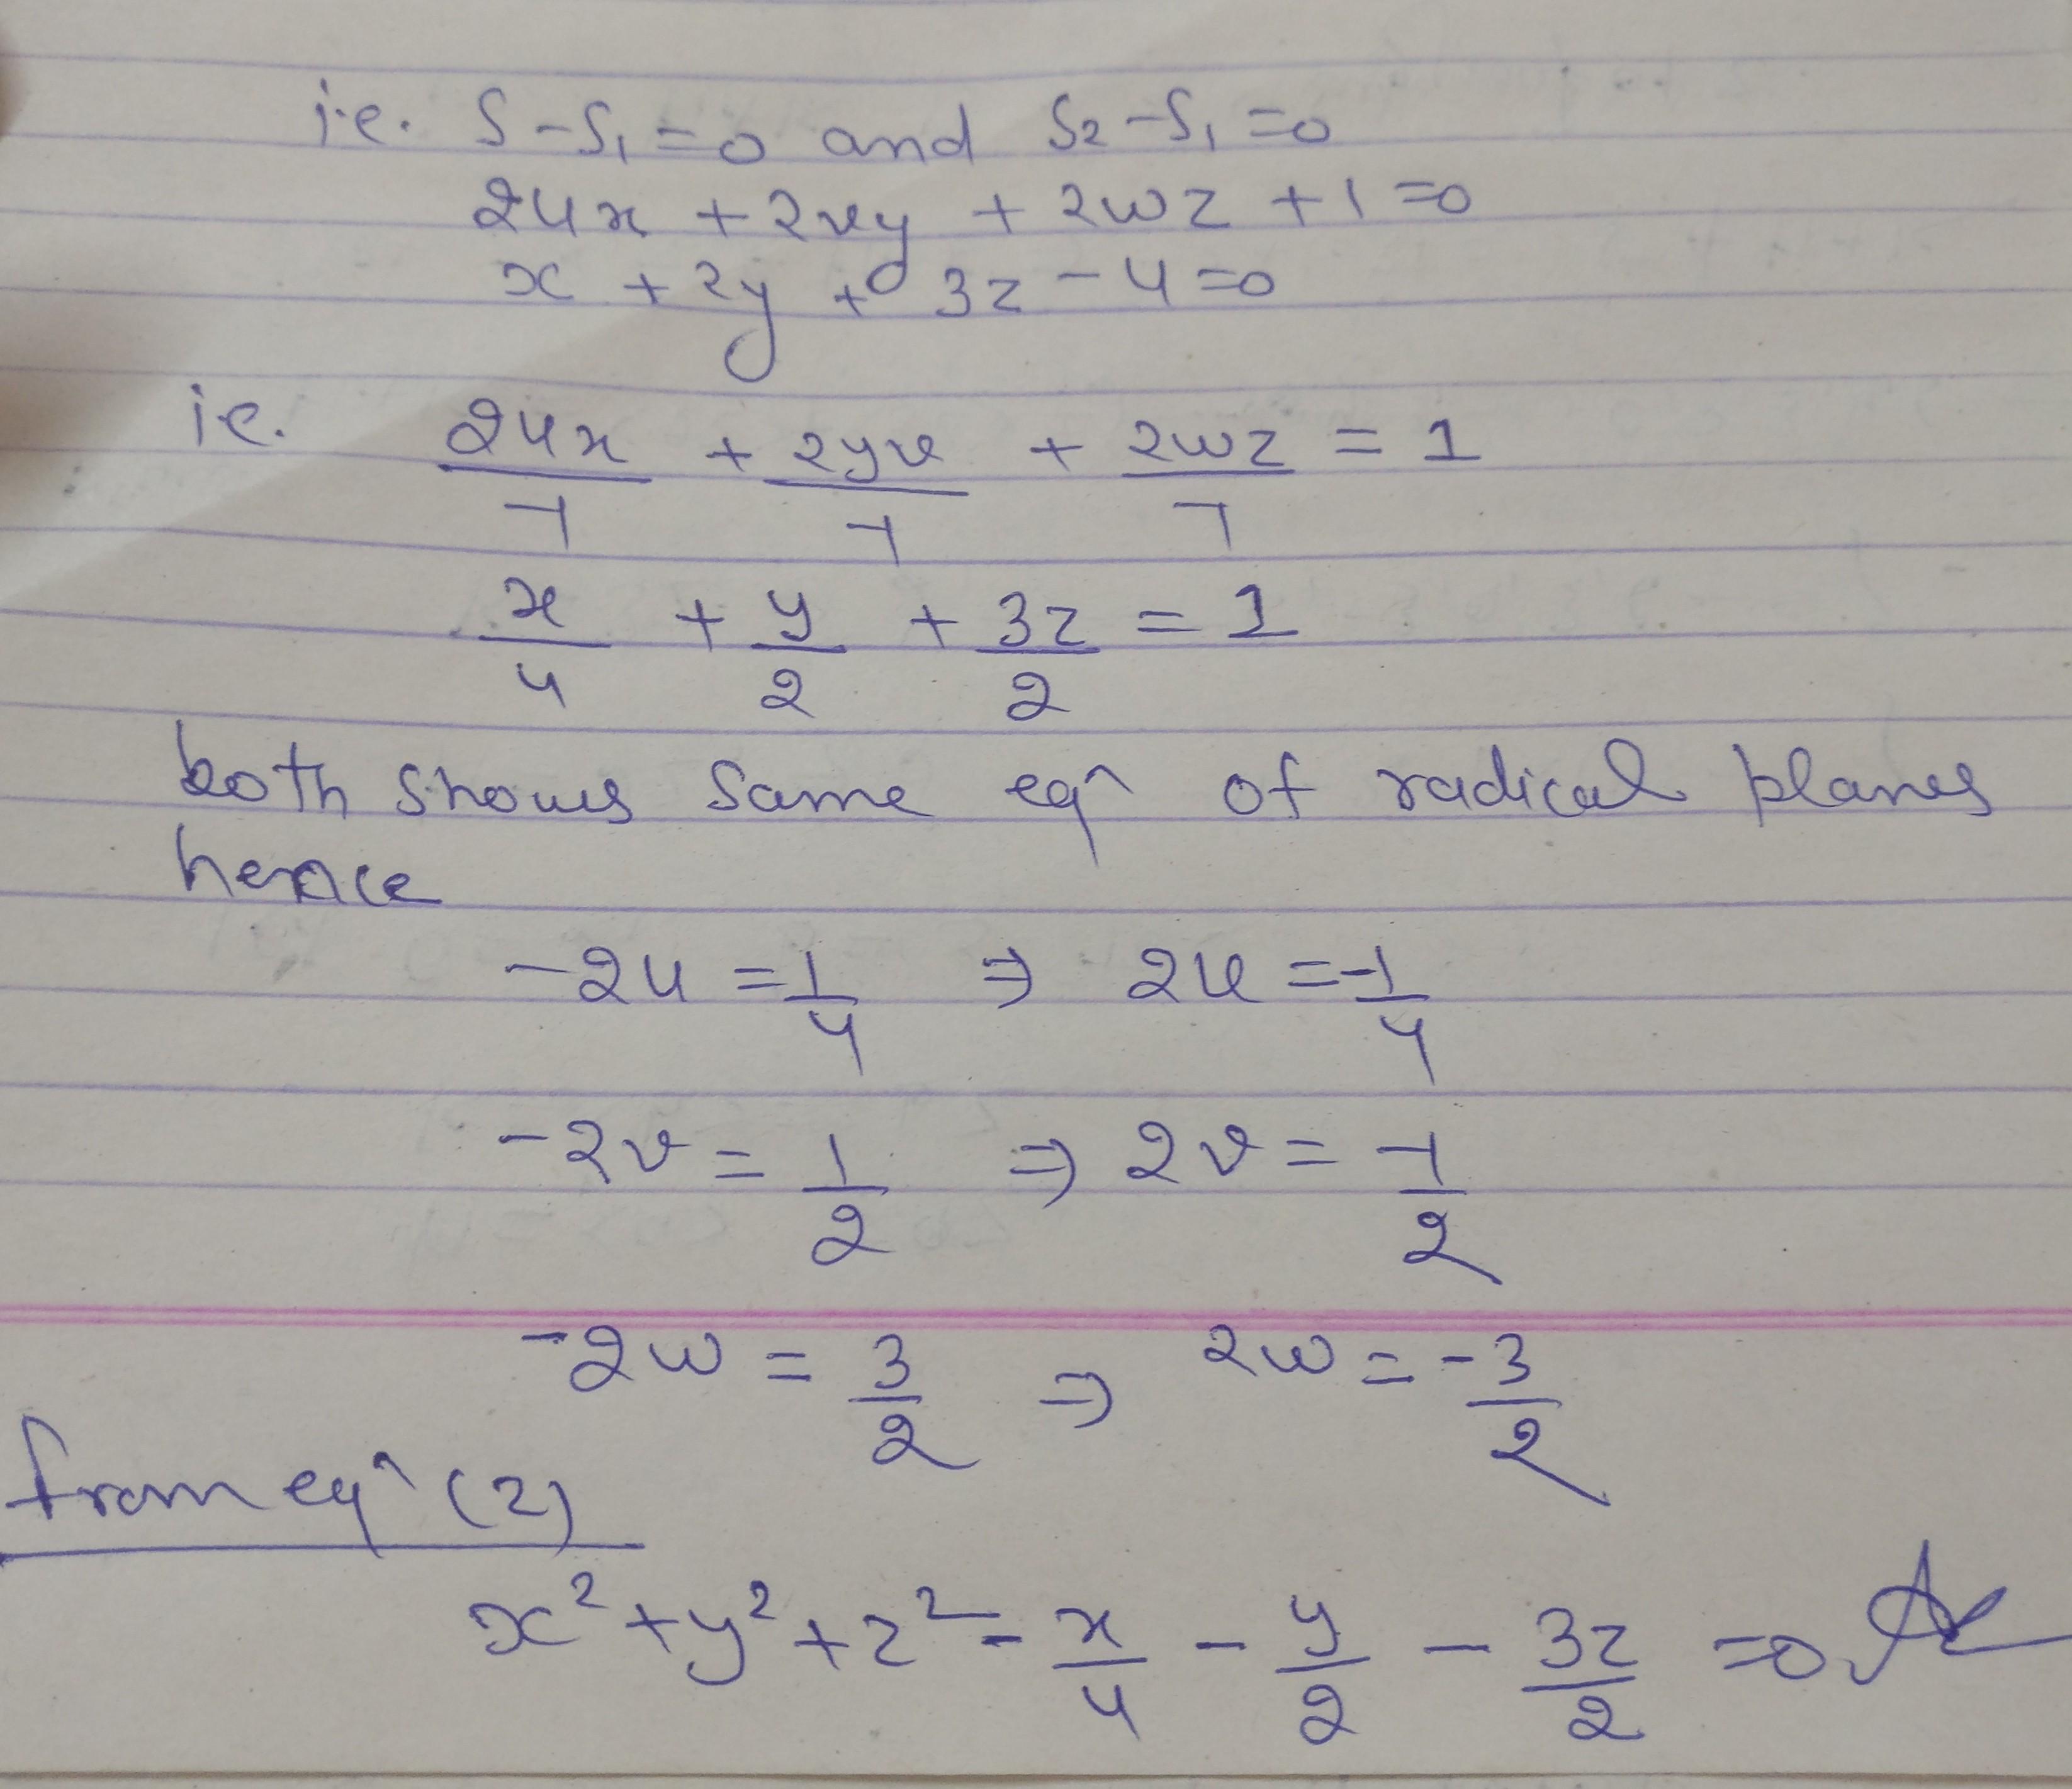 i.e. S-S₁=0 and S₂-S₁=0
2ux + 2vy + 2wz + 1=0
x + 2y + 3z - 4=0
i.e. 2ux/-1 + 2yv/-1 + 2wz/-1 = 1
x/4 + y/2 + 3z/2 = 1
both shows same eqⁿ of radical planes
hence
-2u = 1/4 ⇒ 2u = -1/4
-2v = 1/2 ⇒ 2v = -1/2
-2w = 3/2 ⇒ 2w = -3/2
from eqⁿ (2)
x²+y²+z² - x/4 - y/2 - 3z/2 =0